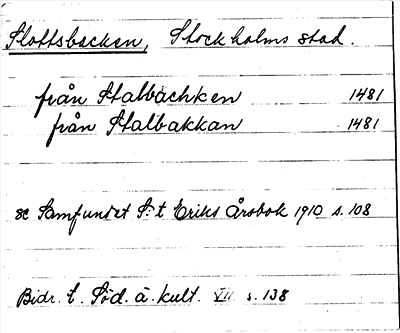 Slottsbacken, Stockholms stad.
från Stalbachken 1481
från Stalbakkan 1481
se Samfundet S:t Eriks Årsbok 1910 s. 108
Bidr. t. Söd. ä. kult. VII s. 138